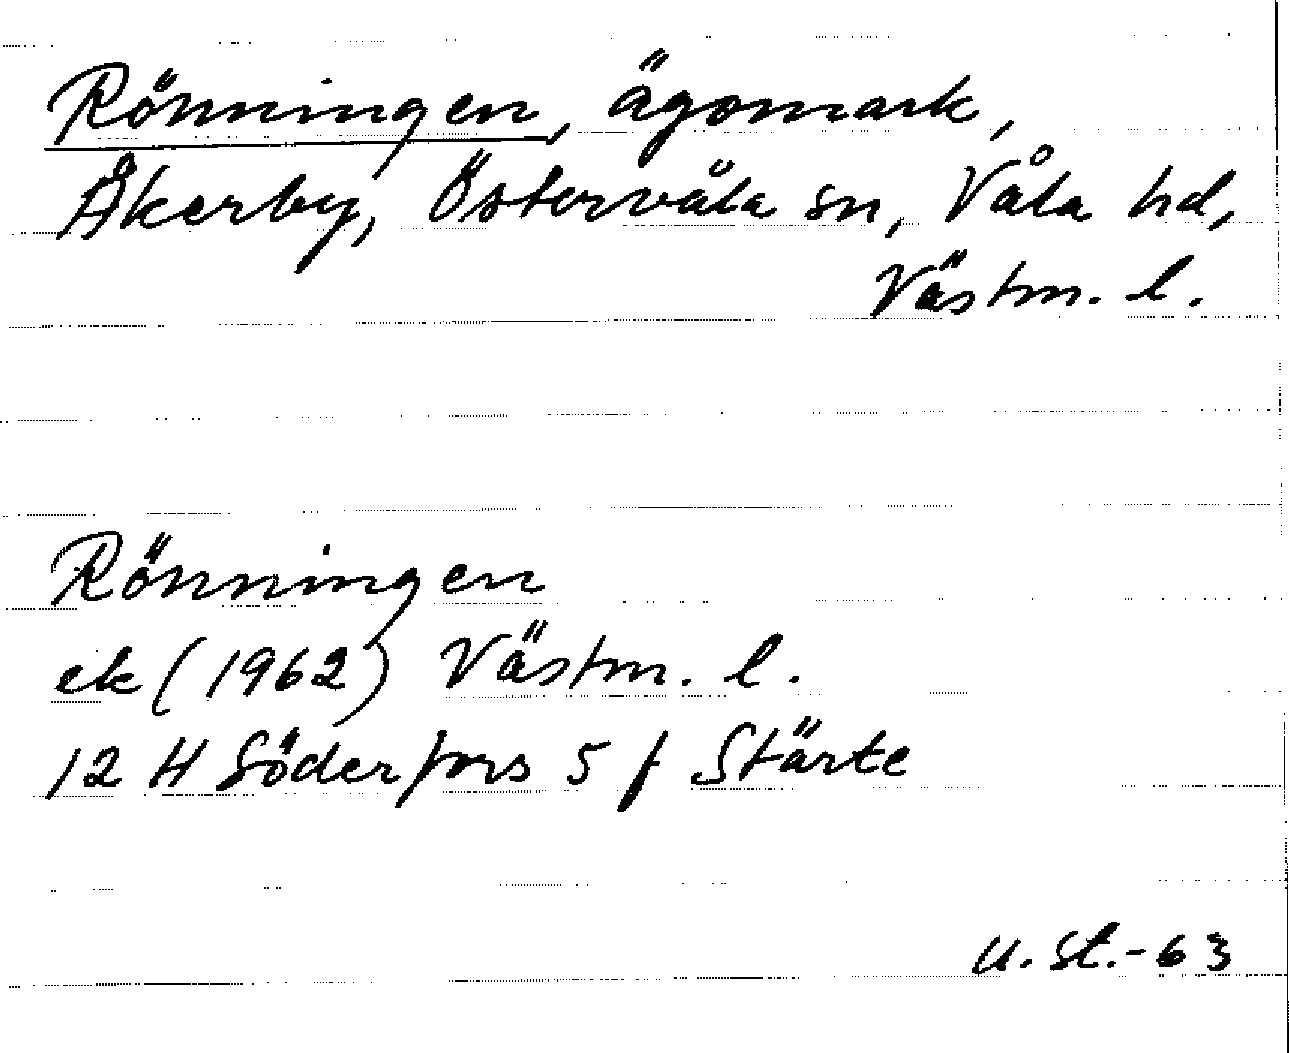 Rönningen, ägomark,
Åkerby, Östervåla sn, Våla hd,
Västm. l.
Rönningen
ek (1962) Västm. l.
12 H Söderfors 5 f Stärte
U. St.-63